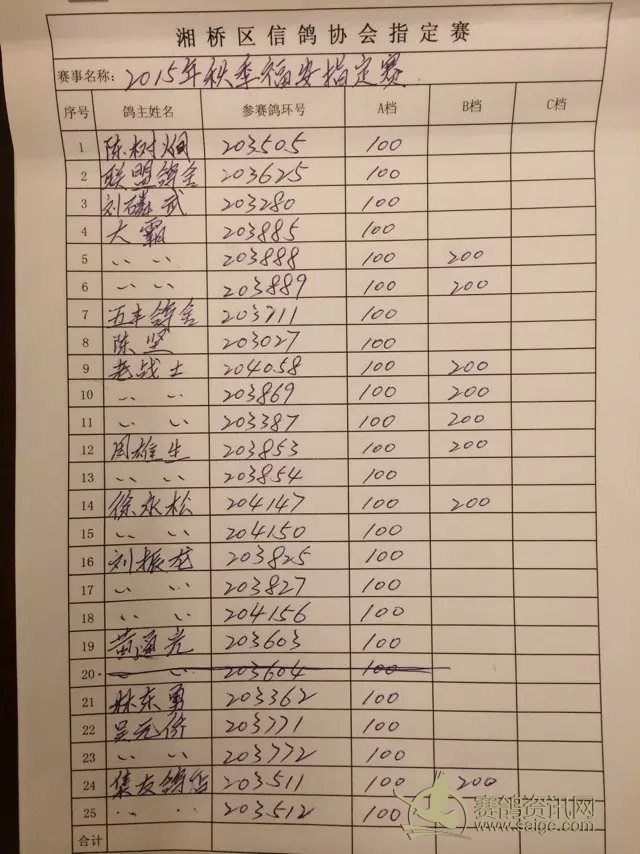 湘桥区信鸽协会指定赛
赛事名称: 2015年秋季福安指定赛
序号 鸽主姓名 参赛鸽环号 A档 B档 C档
1 陈树炯 203505 100
2 联盟鸽舍 203625 100
3 刘磷武 203280 100
4 大霸 203885 100
5 〃 〃 203888 100 200
6 〃 〃 203889 100 200
7 五丰鸽舍 203711 100
8 陈坚 203027 100
9 老战士 204058 100 200
10 〃 〃 203869 100 200
11 〃 〃 203387 100 200
12 周雄生 203853 100 200
13 〃 〃 203854 100
14 徐永松 204147 100 200
15 〃 〃 204150 100
16 刘振龙 203825 100
17 〃 〃 203827 100
18 〃 〃 204156 100
19 黄通光 203603 100
20 〃 203604 100
21 林东勇 203362 100
22 吴元侨 203771 100
23 〃 〃 203772 100
24 集友鸽 203511 100 200
25 〃 〃 203512 100
合计
赛鸽资讯网
www.saige.com